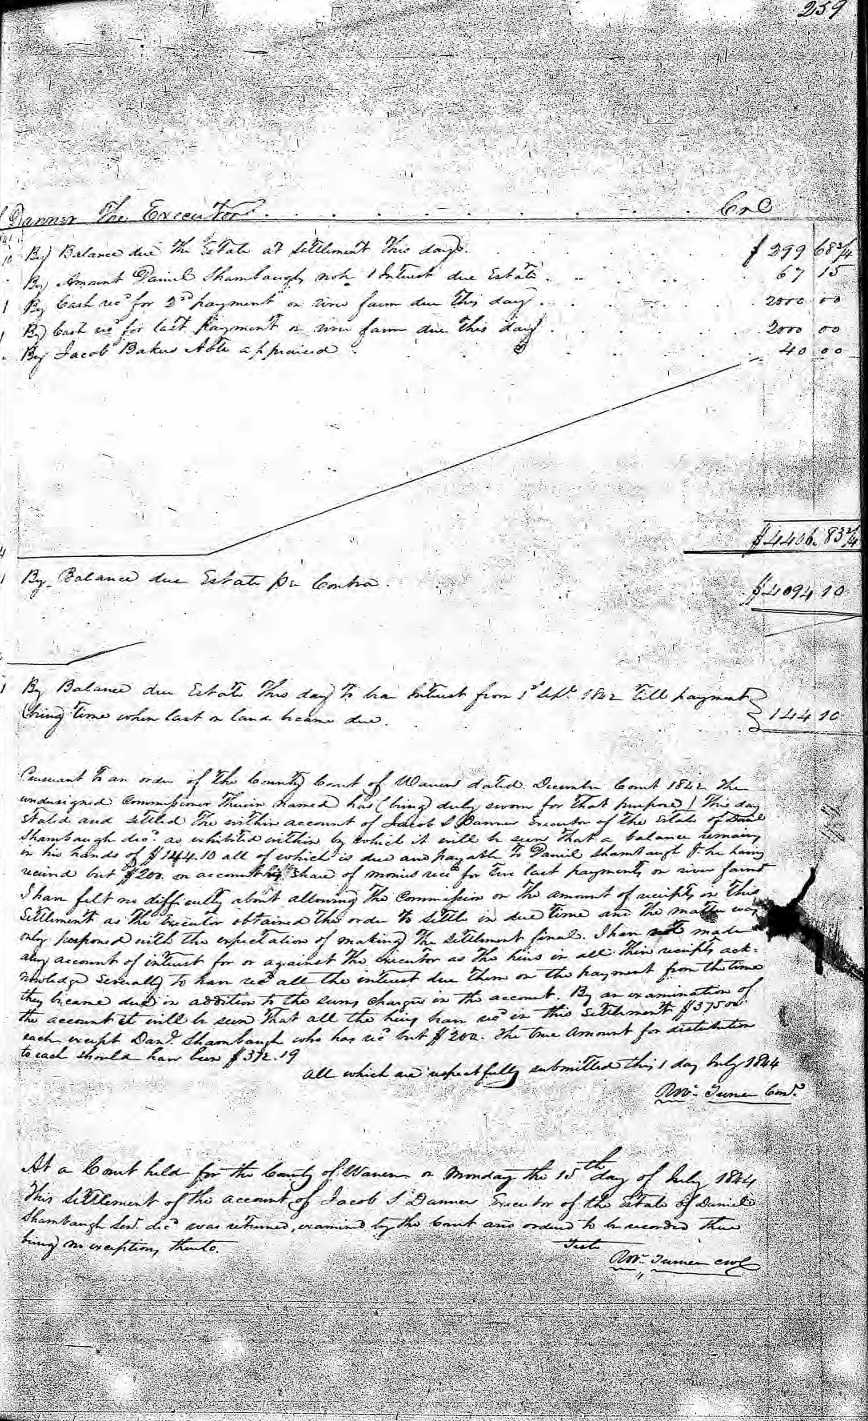 259
Danner The Executor Cr
By Balance due the Estate at settlement this day $ 299 68 3/4
By Amount Daniel Shambaughs note & Interest due Estate 67 15
By Cash recd for 2nd payment on river farm due this day 2000 00
By Cash recd for last payment on river farm due this day 2000 00
By Jacob Bakers appraised 40 00
$4406. 83 3/4
By Balance due Estate pr Contra $4094 10
By Balance due Estate this day to bear Interest from 1st Sept. 1842 till payment
(being time when last on land became due. 144 10
Pursuant to an order of the County Court of Warren dated December Court 1842 the
undersigned Commissioner therein named has (being duly sworn for that purpose) this day
stated and settled the within account of Jacob S Danner Executor of the Estate of Daniel
Shambaugh decd as exhibited within by which it will be seen that a balance remaining
in his hands of $144.10 all of which is due and payable to Daniel Shambaugh he having
received but $200. on account of his Share of monies recd for two last payments on river farm
I have felt no difficulty about allowing the Commission on the amount of receipts in this
Settlement as the Executor obtained the order to settle in due time and the matter was
only postponed with the expectation of making the settlement final. I have not made
any account of interest for or against the executor as the heirs in all their receipts ack-
nowledge severally to have recd all the interest due them on the payment from the time
they became due in addition to the sums charged in the account. By an examination of
the account it will be seen that all the heirs have recd in this Settlement $375.00
each except Danl Shambaugh who has recd but $200. The true amount for distribution
to each should have been $372.19
all which are respectfully submitted this 1 day July 1844
Ro. Turner Comr.
At a Court held for the County of Warren on Monday the 15th day of July 1844
This Settlement of the account of Jacob S Danner Executor of the Estate of Daniel
Shambaugh Senr decd was returned, examined by the Court and ordered to be recorded there
being no exceptions thereto.
Teste
Ro. Turner cwc